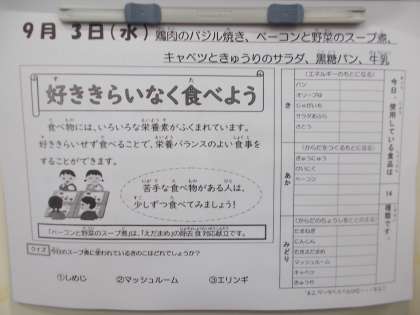 9月 3日(水) 鶏肉のバジル焼き、ベーコンと野菜のスープ煮、
キャベツときゅうりのサラダ、黒糖パン、牛乳
好ききらいなく食べよう
食べ物には、いろいろな栄養素がふくまれています。
好ききらいせず食べることで、栄養バランスのよい食事を
することができます。
苦手な食べ物がある人は、
少しずつ食べてみましょう!
「ベーコンと野菜のスープ煮」は、「えだまめ」の除去食対応献立です。
クイズ 今日のスープ煮に使われているきのこはどれでしょうか?
①しめじ ②マッシュルーム ③エリンギ
今日、使用している食品は
14
種類です。
き
(エネルギーのもとになる)
パン
じゃがいも
サラダあぶら
さとう
あか
(からだをつくるもとになる)
ぎゅうにゅう
とりにく
ベーコン
みどり
(からだのちょうしをととのえる)
たまねぎ
にんじん
えだまめ
マッシュルーム
キャベツ
きゅうり